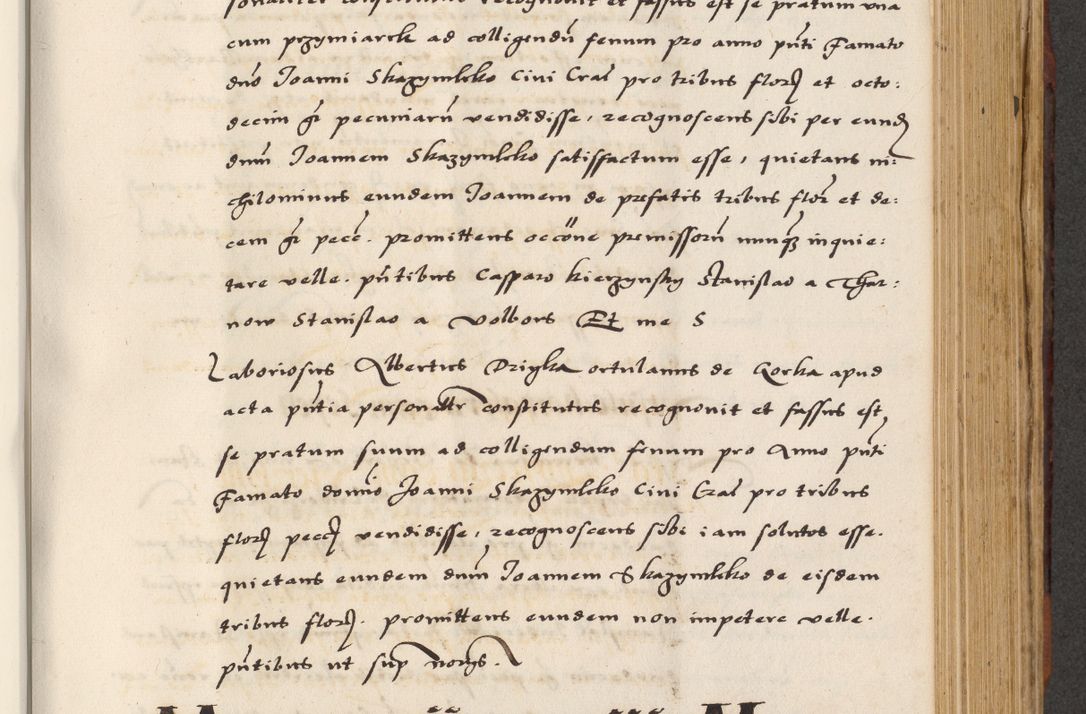 sonaliter constitutus recognovit et fassus est se pratum una
cum przymiarck ad colligendū fenum pro anno pn̄ti Famato
dn̄o Joanni Skazymlcko Civi Crac̄ pro tribus florꝫ et octo:
decim gr̄ pecuniarū vendidisse, recognoscens sibi per eundꝫ
dnm̄ Joannem Skazymlcko satisfactum esse, quietans ni:
chilominus eundem Joannem de prefatis tribus flor̄ et de:
cem gr̄ pecc̄. promittens occ̄one premissorū nunqꝫ inquie:
tare velle. pn̄tibus Casparo kierzynsky Stanislao a Thar:
now Stanislao a Volbors Et me S
Laboriosus Albertus Drzyka ortulanus de Gorka apud
acta pn̄tia personalr̄ constitutus recognovit et fassus est
se pratum suum ad colligendum fenum pro Anno pn̄ti
Famato domīo Joanni Skazymlcko Civi Crac̄ pro tribus
florꝫ peccꝫ vendidisse, recognoscens sibi iam solutos esse.
quietans eundem dnm̄ Joannem Skazymlcko de eisdem
tribus florꝫ. promittens eundem non impetere velle.
pn̄tibus ut sup̄